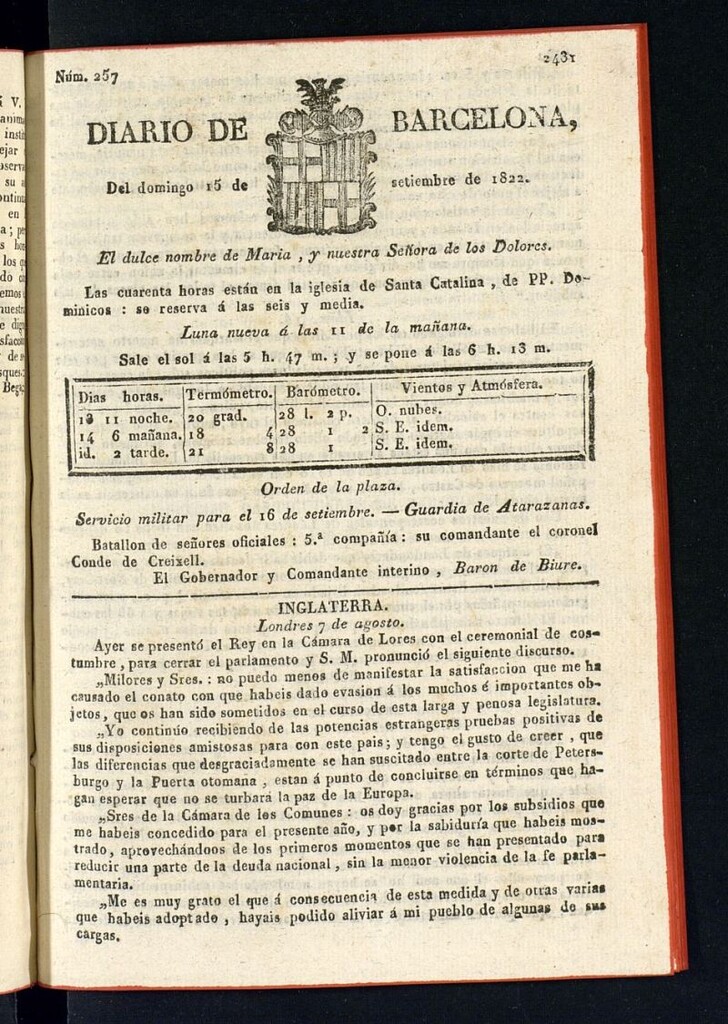 Núm. 257
2431
DIARIO DE BARCELONA,
Del domingo 15 de setiembre de 1822.
El dulce nombre de Maria , y nuestra Señora de los Dolores.
Las cuarenta horas están en la iglesia de Santa Catalina , de PP. Do-
minicos : se reserva á las seis y media.
Luna nueva á las 11 de la mañana.
Sale el sol á las 5 h. 47 m. ; y se pone á las 6 h. 13 m.
Dias horas. Termómetro. Barómetro. Vientos y Atmósfera.
13 11 noche. 20 grad. 28 l. 2 p. O. nubes.
14 6 mañana. 18 4 28 1 2 S. E. idem.
id. 2 tarde. 21 8 28 1 S. E. idem.
Orden de la plaza.
Servicio militar para el 16 de setiembre. — Guardia de Atarazanas.
Batallon de señores oficiales : 5.ª compañía : su comandante el coronel
Conde de Creixell.
El Gobernador y Comandante interino , Baron de Biure.
INGLATERRA.
Londres 7 de agosto.
Ayer se presentó el Rey en la Cámara de Lores con el ceremonial de cos-
tumbre , para cerrar el parlamento y S. M. pronunció el siguiente discurso.
„Milores y Sres. : no puedo menos de manifestar la satisfaccion que me ha
causado el conato con que habeis dado evasion á los muchos é importantes ob-
jetos, que os han sido sometidos en el curso de esta larga y penosa legislatura.
„Yo continúo recibiendo de las potencias estrangeras pruebas positivas de
sus disposiciones amistosas para con este pais; y tengo el gusto de creer , que
las diferencias que desgraciadamente se han suscitado entre la corte de Peters-
burgo y la Puerta otomana , estan á punto de concluirse en términos que ha-
gan esperar que no se turbará la paz de la Europa.
„Sres de la Cámara de los Comunes : os doy gracias por los subsidios que
me habeis concedido para el presente año, y por la sabiduría que habeis mos-
trado, aprovechándoos de los primeros momentos que se han presentado para
reducir una parte de la deuda nacional, sin la menor violencia de la fe parla-
mentaria.
„Me es muy grato el que á consecuencia de esta medida y de otras varias
que habeis adoptado , hayais podido aliviar á mi pueblo de algunas de sus
cargas.